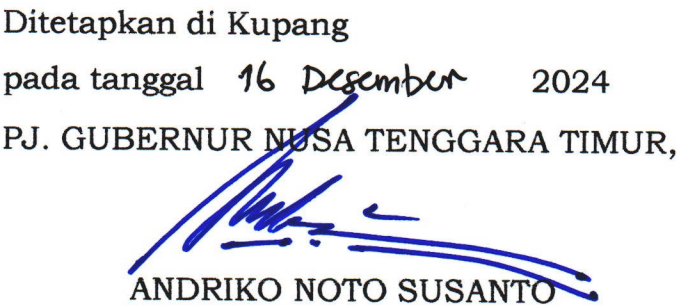 Ditetapkan di Kupang
pada tanggal 16 Desember 2024
PJ. GUBERNUR NUSA TENGGARA TIMUR,
ANDRIKO NOTO SUSANTO